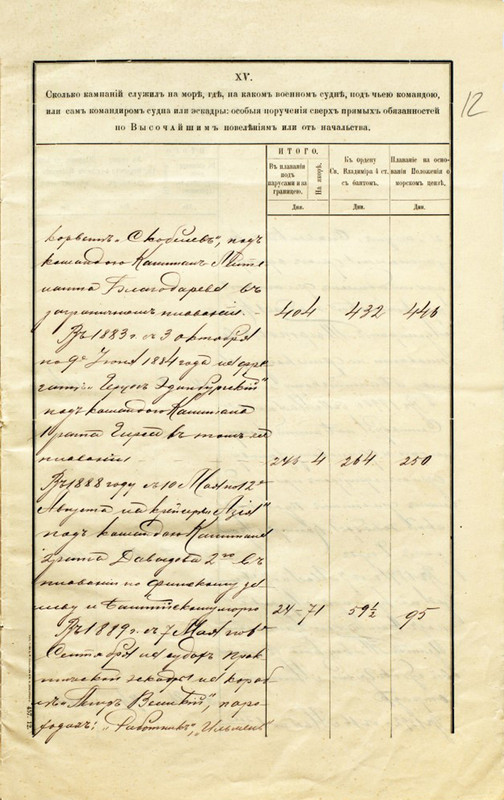 12
XV.
Сколько кампаній служилъ на морѣ, гдѣ, на какомъ военномъ суднѣ, подъ чьею командою,
или самъ командиромъ судна или эскадры: особыя порученія сверхъ прямыхъ обязанностей
по Высочайшимъ повелѣніямъ или отъ начальства.
ИТОГО.
Въ плаваніи подъ парусами и за границею.
На якорѣ.
Къ ордену Св. Владиміра 4 ст. съ бантомъ.
Плаваніе на основаніи Положенія о морскомъ цензѣ.
Дни. Дни. Дни.
корветѣ „Скобелевъ“, подъ
командою Капитанъ-Лейте
нанта Благодарева въ
заграничномъ плаваніи. 404 432 446
Въ 1883 г. съ 3 октября
по 9е Іюня 1884 года на фре
гатѣ „Герцогъ Эдинбургскій“
подъ командою Капитана
1 ранга въ томъ же
плаваніи 246 - 4 264 250
Въ 1888 году съ 10 Мая по 12е
Августа на крейсерѣ „Азія“
подъ командою Капитана
2 ранга Давыдова 2го въ
плаваніи по Финскому за
ливу и Балтійскому морю 24 - 71 59 1/2 95
Въ 1889 г. съ 7 Мая по
Сентября на судахъ прак
тической эскадры на кораб
лѣ „Петръ Великій“, паро
ходахъ: „Работникъ“, „Ильмень“